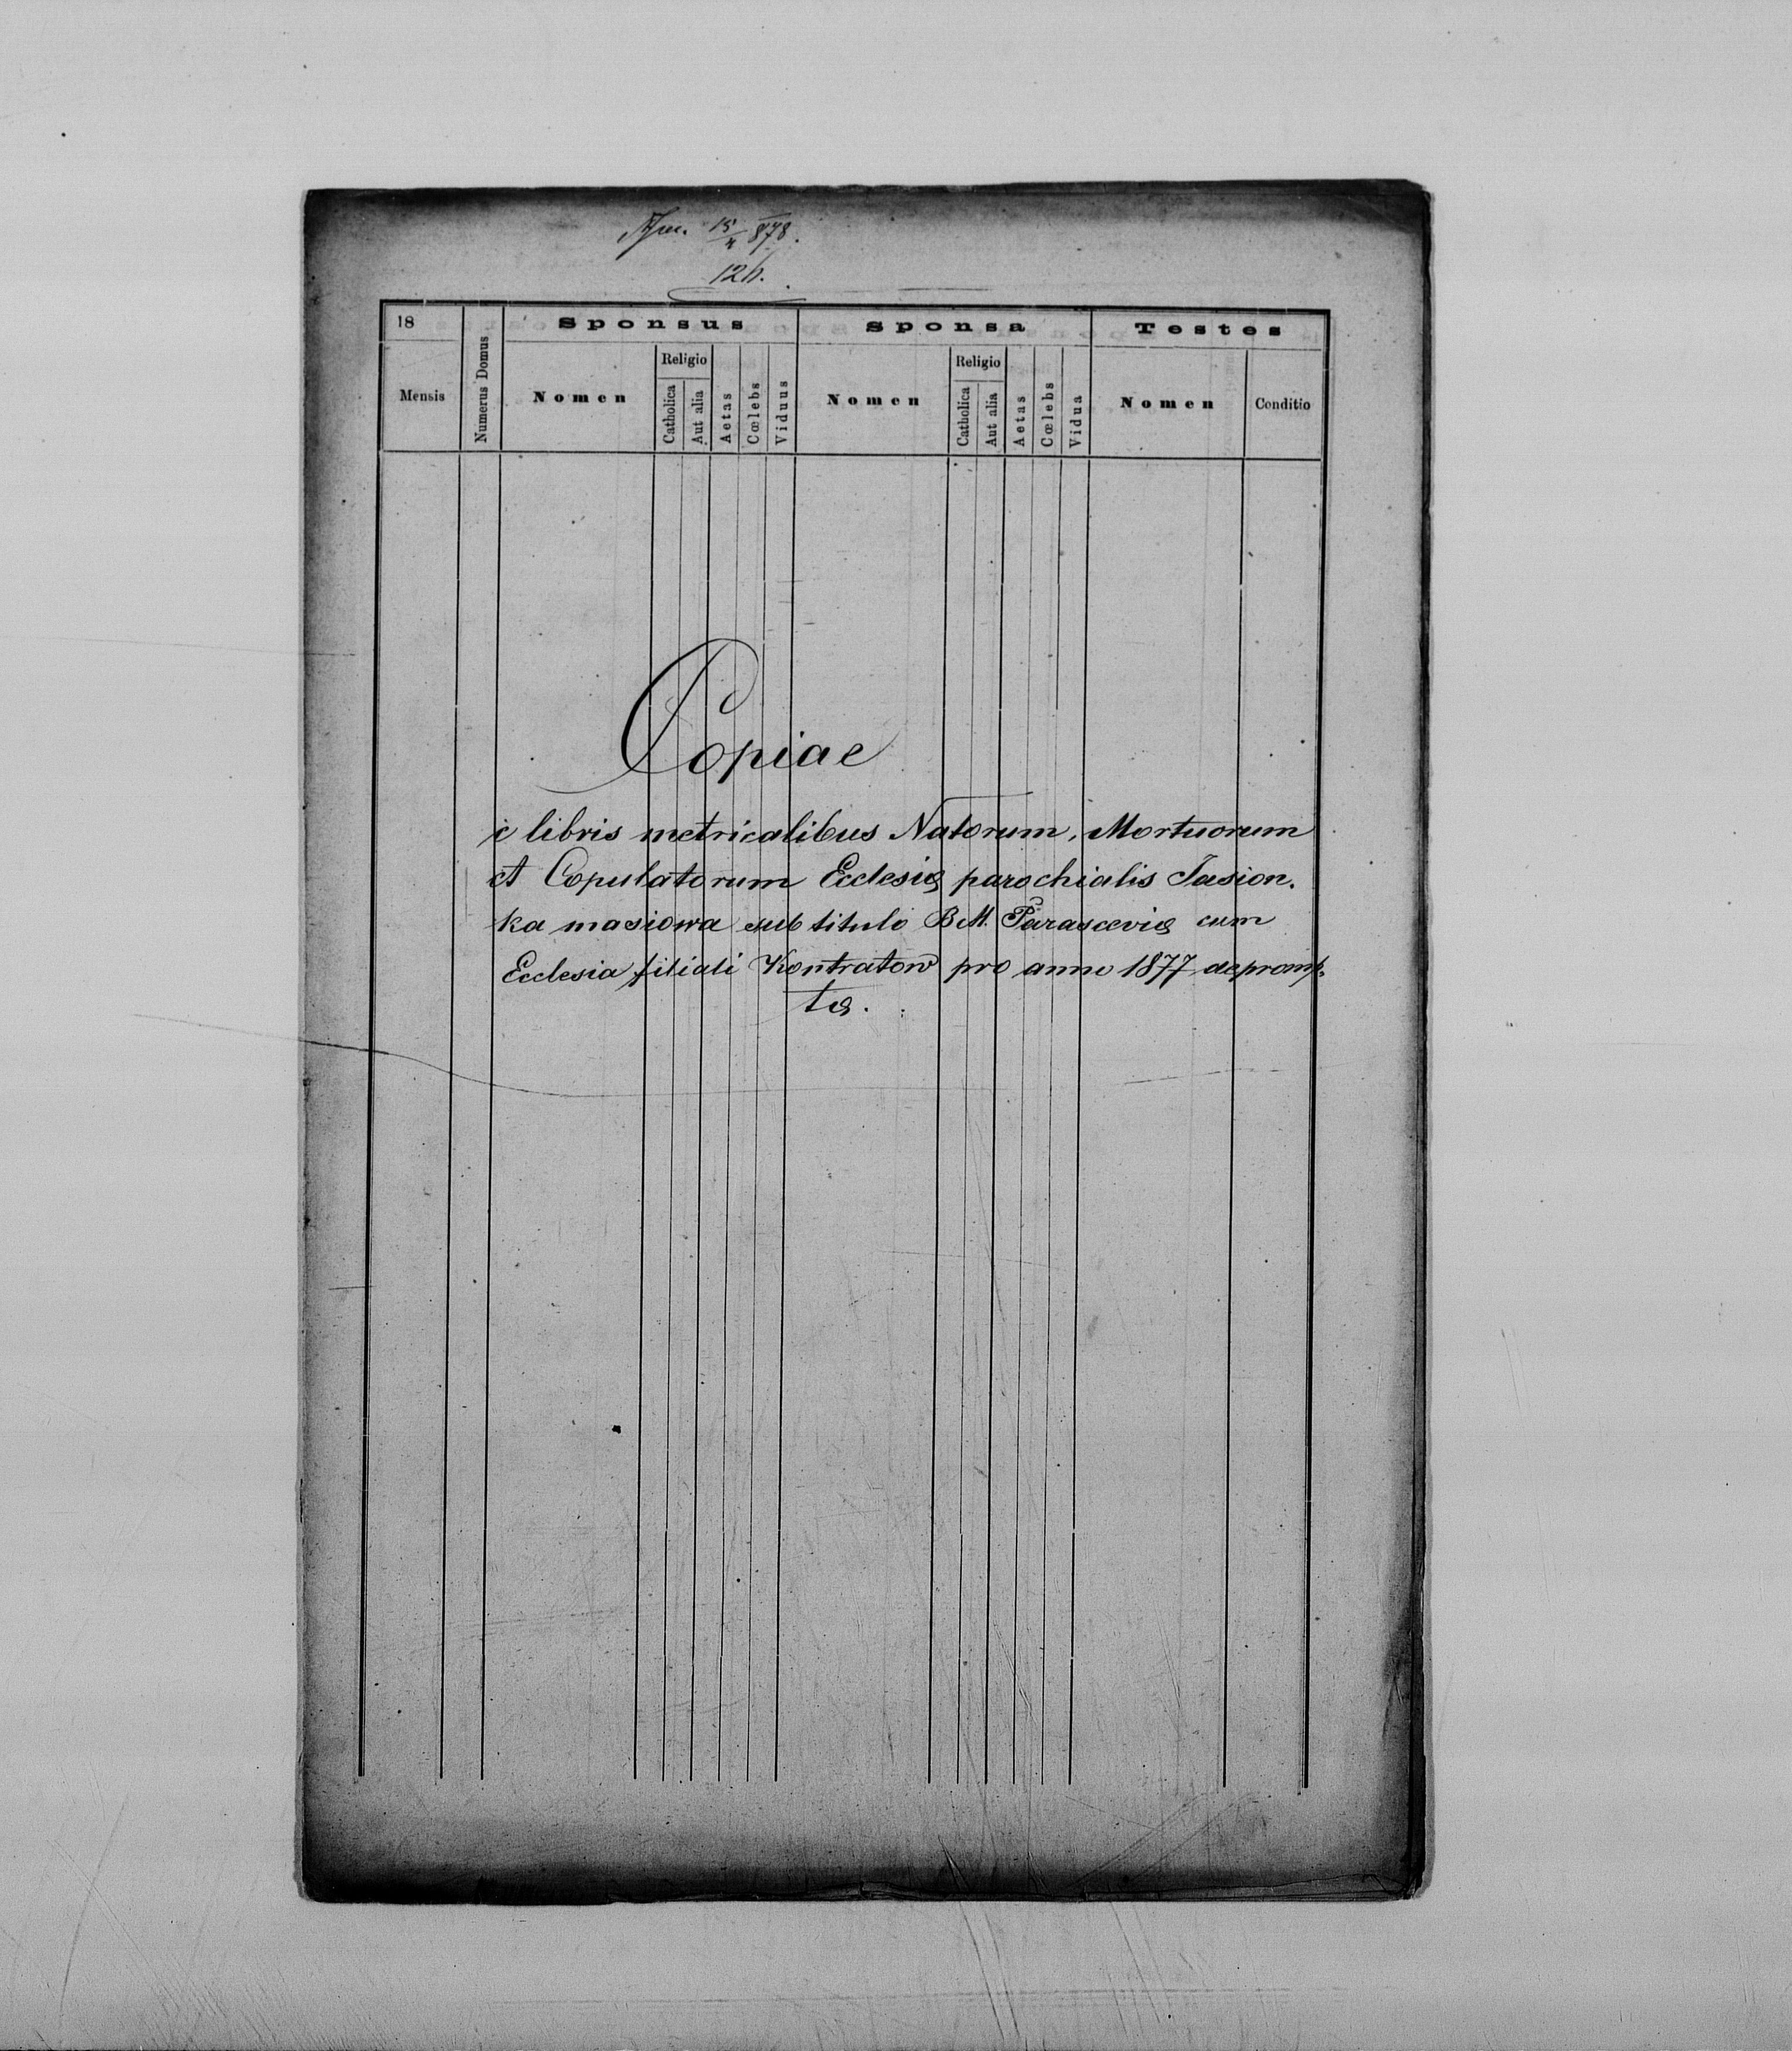 15/4 878.
12h.
18 Sponsus Sponsa Testes
Mensis Numerus Domus Nomen Religio Catholica Aut alia Aetas Cœlebs Viduus Nomen Religio Catholica Aut alia Aetas Cœlebs Vidua Nomen Conditio
Copiae
e libris metricalibus Natorum, Mortuorum
et Copulatorum Ecclesiæ parochialis Jasion.
ka masiowa sub titulo B.M. Parasceviæ cum
Ecclesia filiali Kontratow pro anno 1877 depromp.
tæ.